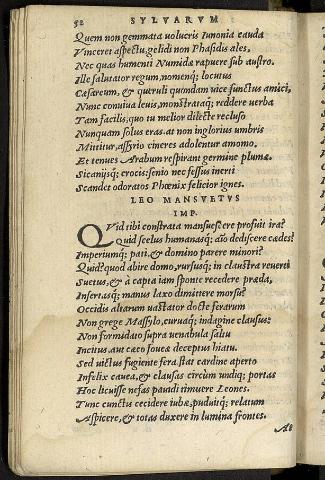 52 SYLVARVM
Quem non gemmata volucris Iunonia cauda
Vinceret aspectu, gelidi non Phasidis ales,
Nec quas humenti Numidæ rapuere sub austro.
Ille salutator regum, nomenq; locutus
Cæsareum, & queruli quondam vice functus amici,
Nunc conuiua leuis, monstrataq; reddere verba
Tam facilis, quo tu melior dilecte recluso
Nunquam solus eras. at non inglorius umbris
Mittitur, assyrio cineres adolentur amomo.
Et tenues Arabum respirant germine plumæ.
Sicanijsq; crocis: senio nec fessus inerti
Scandet odoratos Phœnix felicior ignes.
LEO MANSVETVS
IMP.
QVid tibi constrata mansuescere profuit ira?
Quid scelus humanasq; aīo dediscere cædes?
Imperiumq; pati, & domino parere minori?
Quid? quod abire domo, rursusq; in claustra reuerti
Suetus, & a capta iam sponte recedere præda,
Insertasq; manus laxo dimittere morsu?
Occidis altarum uastator docte ferarum
Non grege Massylo, curuaq; indagine clausus:
Non formidato supra uenabula saltu
Incitus, aut cæco foueæ deceptus hiatu.
Sed uictus fugiente fera. stat cardine aperto
Infelix cauea, & clausas circum undiq; portas
Hoc licuisse nefas pauidi timuere Leones.
Tunc cunctis cecidere iubæ, puduitq; relatum
Aspicere, & totas duxere in lumina frontes.